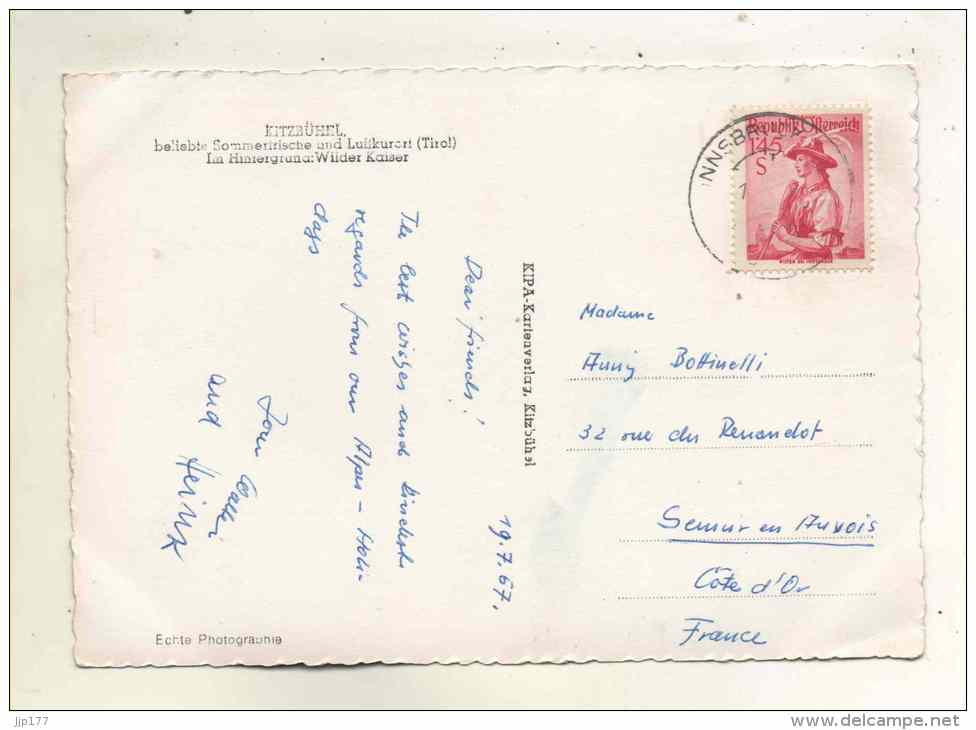 KITZBÜHEL,
beliebte Sommerfrische und Luftkurort (Tirol)
Im Hintergrund: Wilder Kaiser
INNSBRUCK
Republik Österreich
1.45
S
19.7.67.
Dear friends!
The best wishes and kindest
regards from our Alpes-Holi-
days
Your
and Heinz
KIPA-Kartenverlag, Kitzbühel
Madame
Anny Bottinelli
32 rue du Renaudot
Semur en Auxois
Côte d'Or
France
Echte Photographie
jjp177
www.delcampe.net